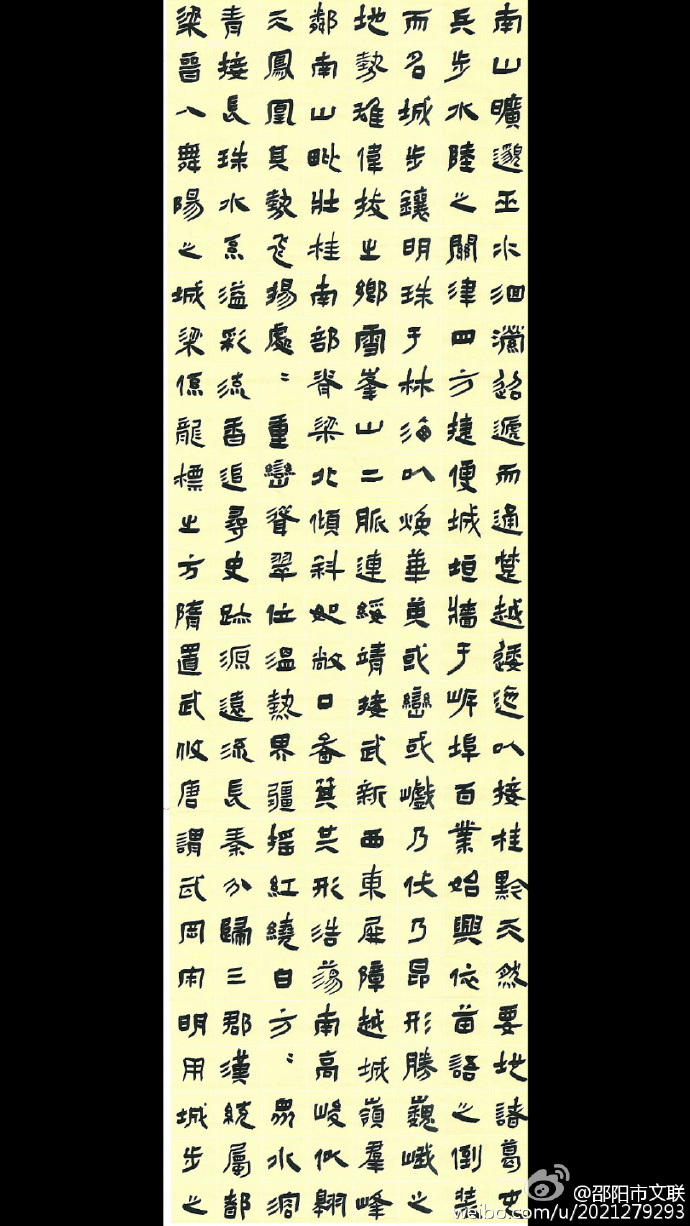 南山曠邈巫水洄瀠迢遞而通楚越逶迤以接桂黔天然要地諸葛屯
兵步水陸之關津四方捷便城垣牆于岸埠百業始興依苗語之倒裝
而名城步鑲明珠于林海以煥華奠或巒或巘乃伏乃昂形勝巍峨之
地勢雄偉拔之鄉雪峯山二脈連綏靖接武新西東屏障越城嶺羣峰
鄰南山毗壯桂南部脊梁北傾斜如敞口畚箕其形浩蕩南高峻似翱
天鳳凰其勢飛揚處〻重巒聳翠位溫熱界疆搖紅繞白方〻眾水溶
青接長珠水系溢彩流香追尋史跡源遠流長秦分歸三郡漢統屬都
梁晉入舞陽之城梁係龍標之方隋置武攸唐謂武岡宋明用城步之
@邵阳市文联
weibo.com/u/2021279293